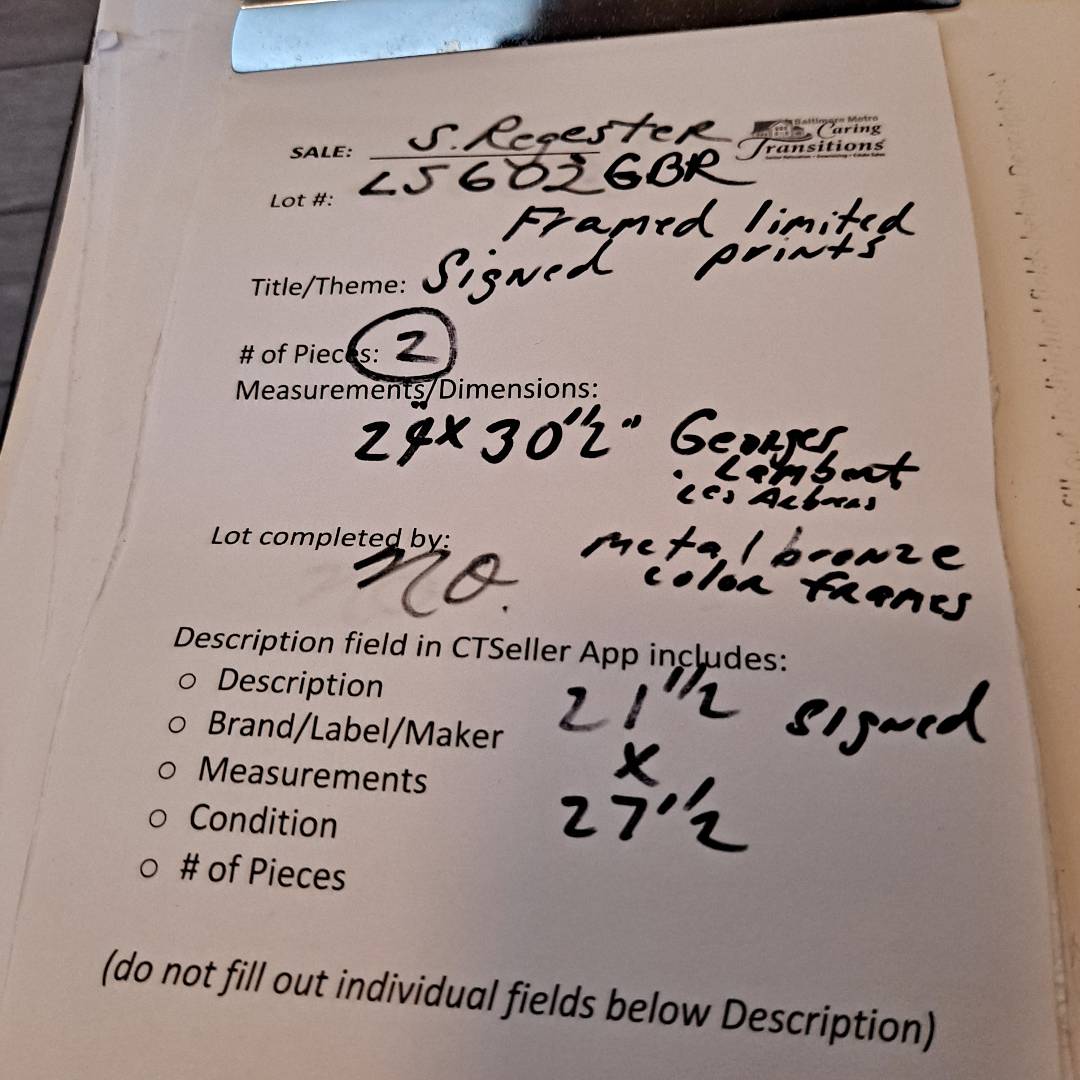 SALE: S. Regester
Baltimore Metro
Caring
Transitions
Lot #: LS602 GBR
Framed limited
Title/Theme: Signed prints
# of Pieces: 2
Measurements/Dimensions:
24" x 30 1/2" Georges
Lambert
Les
Lot completed by:
metal bronze
color frames
Description field in CTSeller App includes:
○ Description
○ Brand/Label/Maker
○ Measurements
○ Condition
○ # of Pieces
21 1/2 signed
x
27 1/2
(do not fill out individual fields below Description)